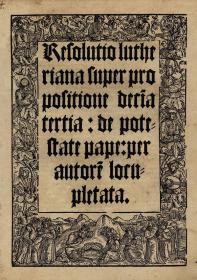 Resolutio luthe
riana super pro
positione decĩa
tertia : de pote-
state pape: per
autorẽ locu-
pletata.